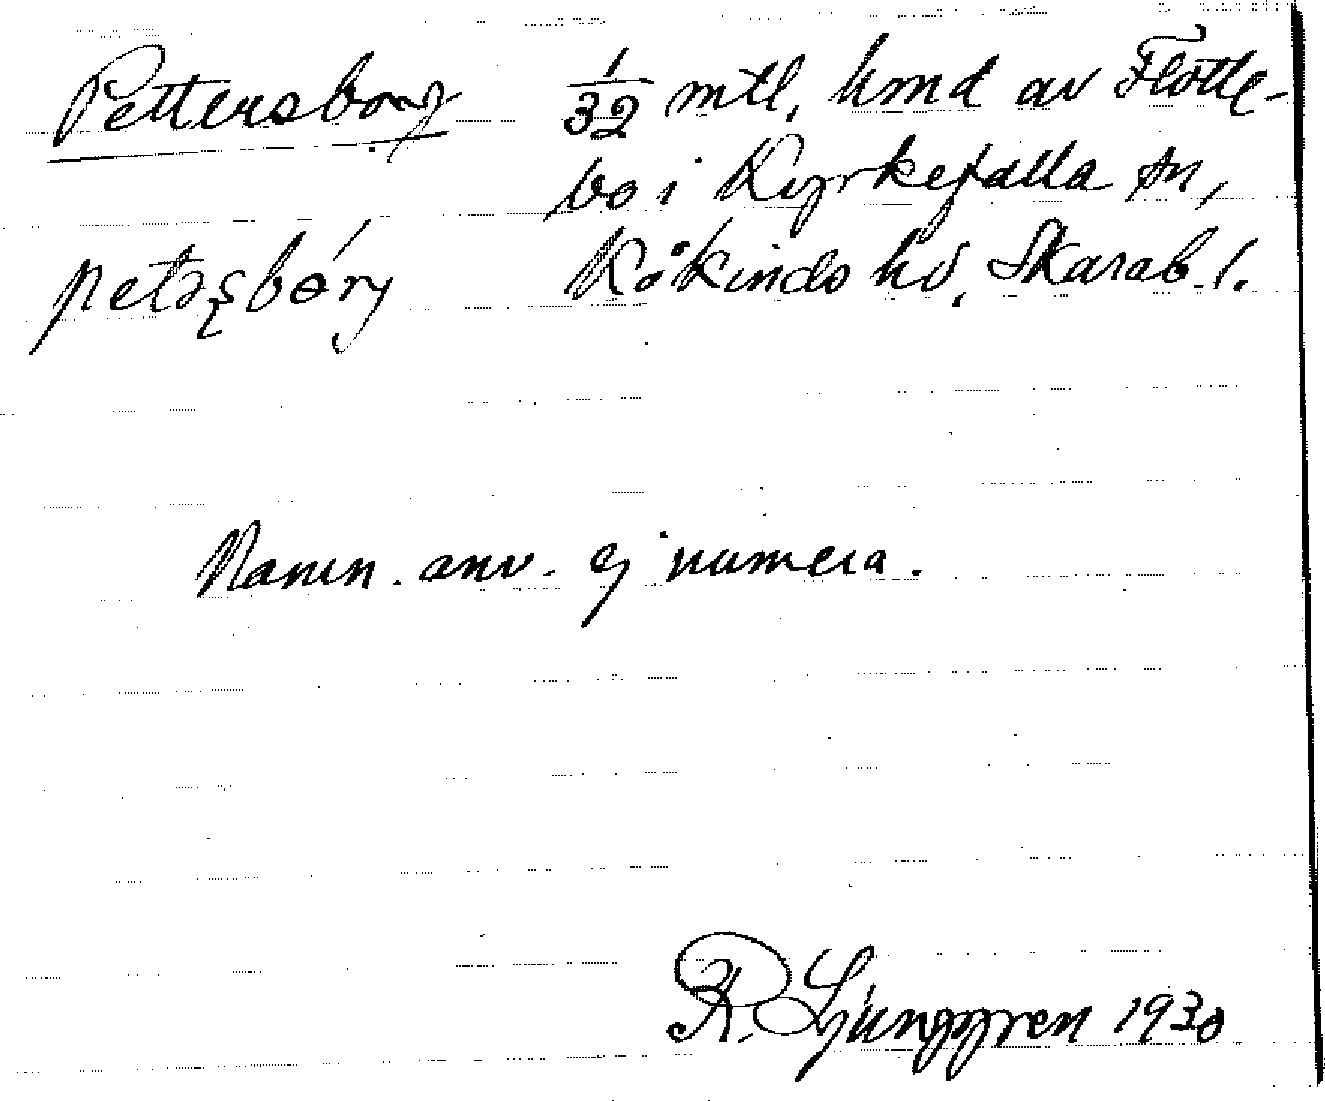 Pettersborg 1/32 mtl, hmd av Flotte-
bo i Kyrkefalla sn,
petəʂbórj Kåkinds hd, Skarab. l.
Namn. anv. ej numera.
R. Ljunggren 1930